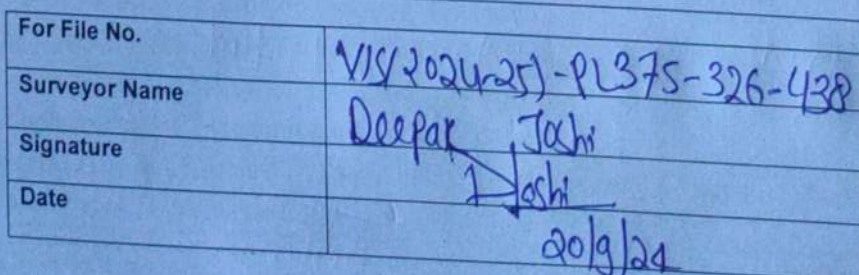 For File No. VIS(2024-25)-PL375-326-438
Surveyor Name Deepak Joshi
Signature Joshi
Date 20/9/24